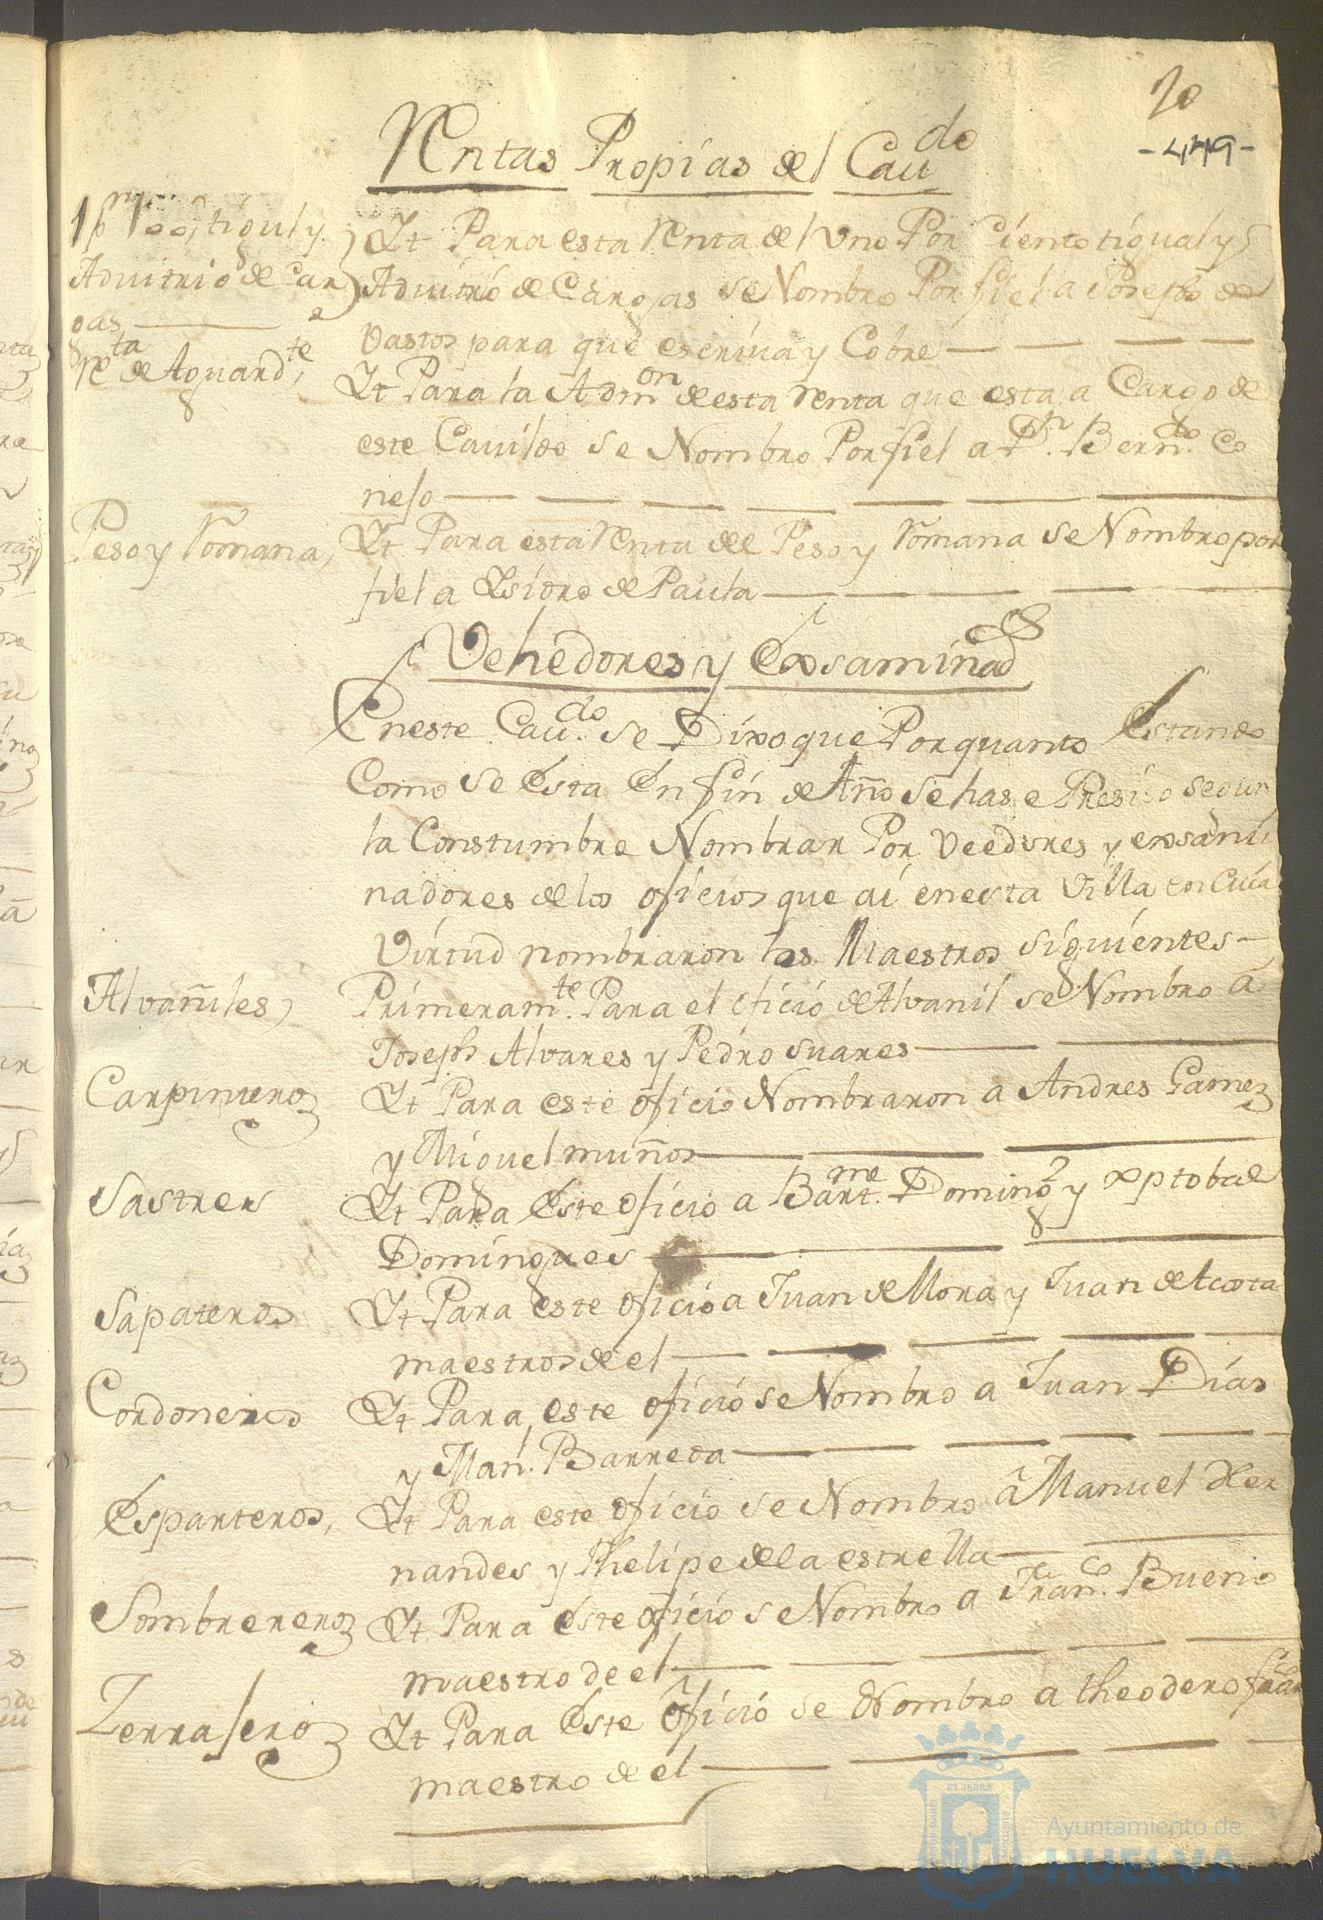 20
-449-
Rentas Propias del Caudo
1 pr 100, tigual y
Aduitrio de Car
gas
Yt Para esta Renta del Vno Por Ciento tigual y
Aduitrio de Cargas se Nombro Por fiel a Joseph de
Vastos para que escriua y Cobre
Rta de Aguardte,
Yt Para la Admon de esta Renta que esta a Cargo de
este Cauildo se Nombro Por fiel a Dn. Berndo. Co
nejo
Peso y Romana,
Yt Para esta Renta del Peso y Romana se Nombro por
fiel a Ysidro de Paula
Vehedores y Exsaminads
Eneste Caudo. se Dixo que Por quanto Estando
Como se Esta En fin de Año se hase Presiso segun
la Constumbre Nombrar Por Veedores y exsami
nadores de los oficios que ai enesta Villa en Cuia
Virtud nombraron los Maestros siguientes
Alvañiles,
Primeramte. Para el oficio de Alvanil se Nombro a
Joseph Alvares y Pedro Suares
Carpinteros
Yt Para este oficio Nombraron a Andres Gamez
y Miguel muños
Sastres
Yt Para Este oficio a Bartme. Domingz y xptobal
Domingues
Sapateros
Yt Para este oficio a Juan de Mora y Juan de Acosta
maestros de el
Cordoneros
Yt Para este oficio se Nombro a Juan Dias
y Manl. Barreda
Esparteros,
Yt Para este oficio se Nombro â Manuel Her
nandes y Phelipe de la estrella
Sombrereros
Yt Para este oficio se Nombro a Franco. Bueno
maestro de el
Zerrajeros
Yt Para Este oficio se Nombro a theodero
maestro de el
Ayuntamiento de
HUELVA